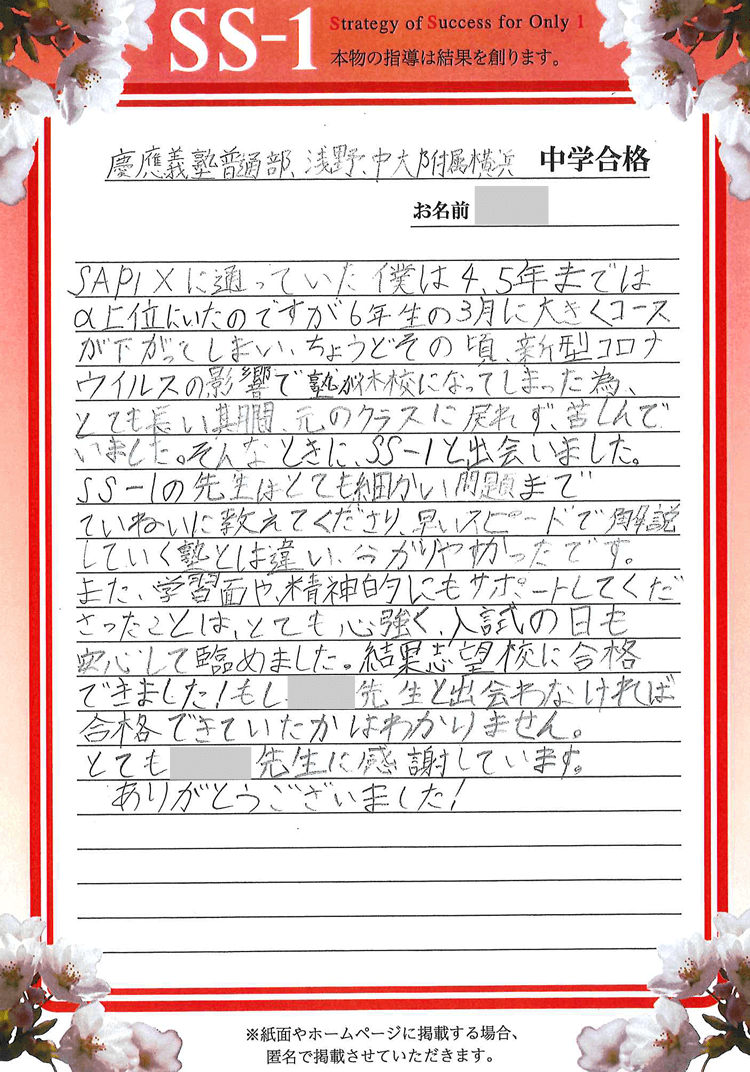 SS-1
Strategy of Success for Only 1
本物の指導は結果を創ります。
慶應義塾普通部、浅野、中大附属横浜 中学合格
お名前
SAPIXに通っていた僕は4、5年までは
α上位にいたのですが6年生の3月に大きくコース
が下がってしまい、ちょうどその頃、新型コロナ
ウイルスの影響で塾が休校になってしまった為、
とても長い期間、元のクラスに戻れず、苦しんで
いました。そんなときに、SS-1と出会いました。
SS-1の先生はとても細かい問題まで
ていねいに教えてくださり、早いスピードで解説
していく塾とは違い、分かりやすかったです。
また、学習面や、精神的にもサポートしてくだ
さったことは、とても心強く、入試の日も
安心して臨めました。結果志望校に合格
できました!もし 先生と出会わなければ
合格できていたかはわかりません。
とても 先生に感謝しています。
ありがとうございました!
※紙面やホームページに掲載する場合、
匿名で掲載させていただきます。